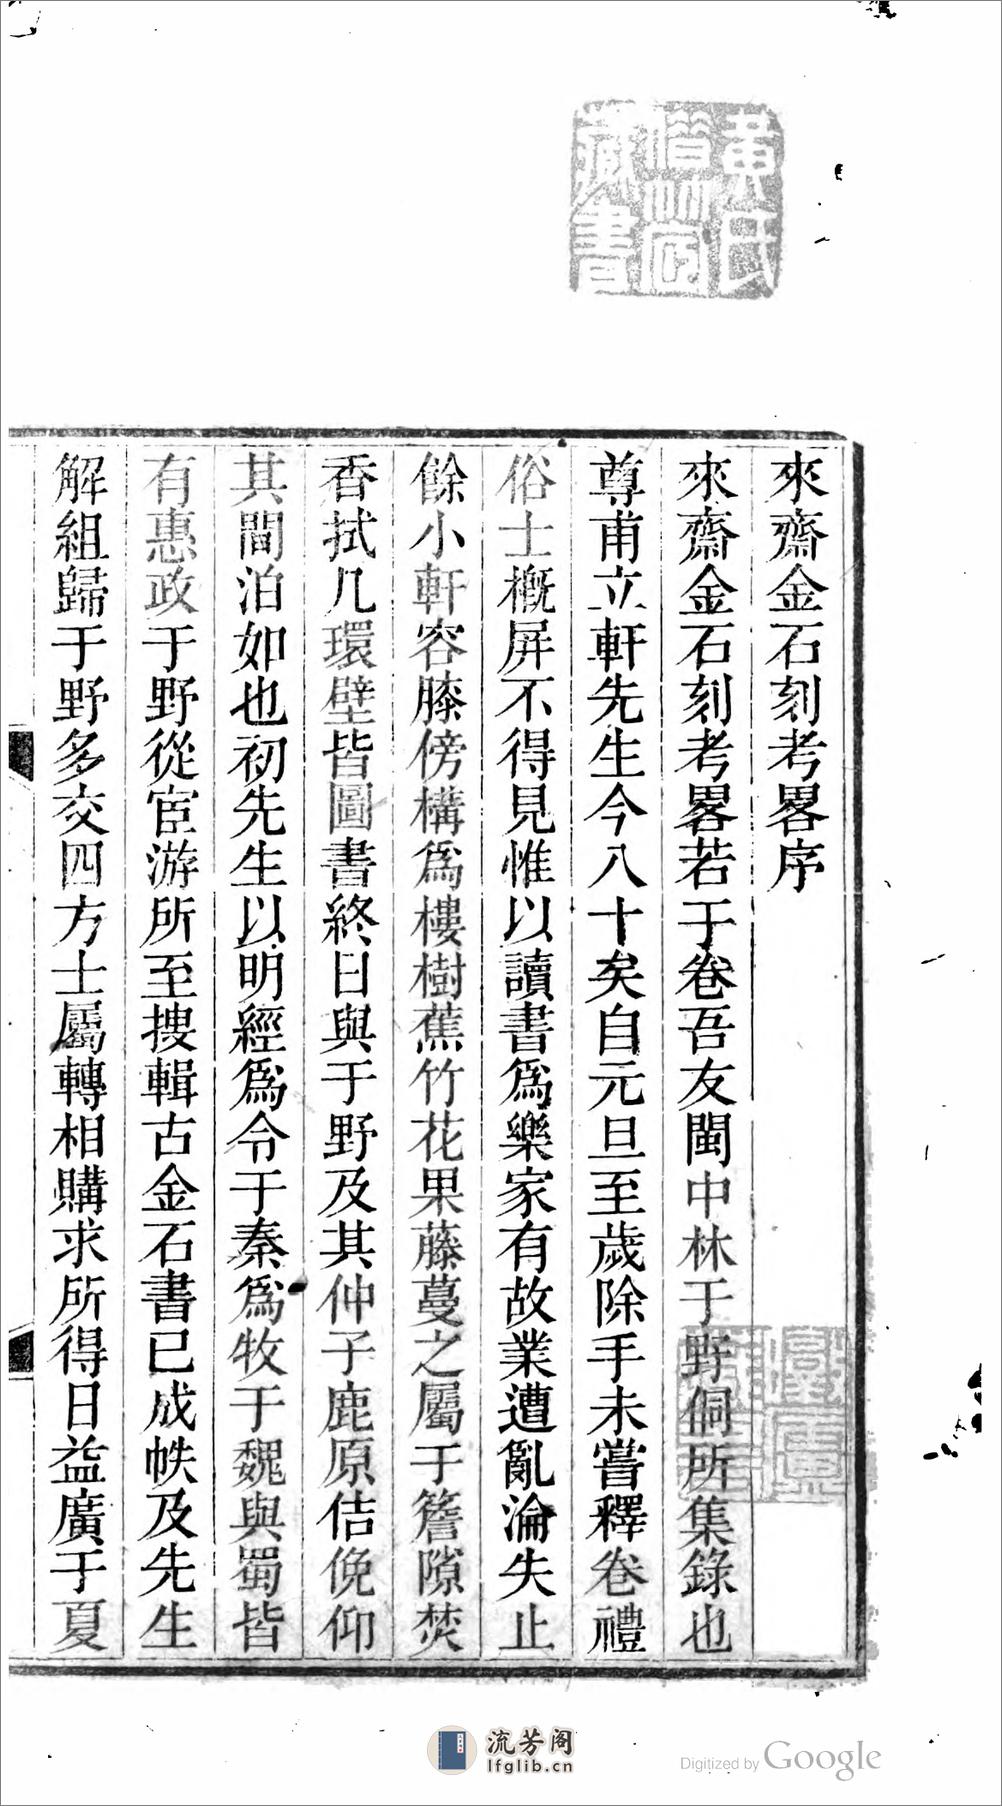 黃氏
惜竹窗
藏書
來齋金石刻考畧序
來齋金石刻考畧若于卷吾友閩中林于野侗所集錄也
尊甫立軒先生今八十矣自元旦至歲除手未嘗釋卷禮
俗士概屏不得見惟以讀書爲樂家有故業遭亂淪失止
餘小軒容膝傍構爲樓樹蕉竹花果藤蔓之屬于簷隙焚
香拭几環壁皆圖書終日與于野及其仲子鹿原佶俛仰
其間泊如也初先生以明經爲令于秦爲牧于魏與蜀皆
有惠政于野從宦游所至搜輯古金石書已成帙及先生
解組歸于野多交四方士屬轉相購求所得日益廣于夏
流芳阁
lfglib.cn
Digitized by Google